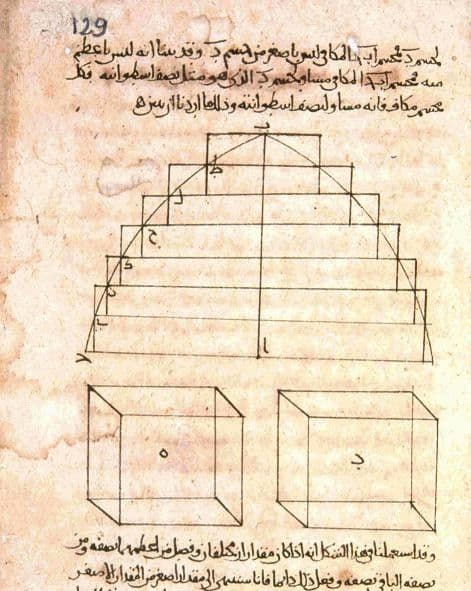 129
المكافي ليس باصغر من جسم د وقد بينا انه ليس باعظم
منه فمجسم المكافي مساو لجسم د الذي هو مثل نصف اسطوانته فكل
مجسم مكاف فانه مساو لنصف اسطوانته وذلك ما اردنا ان نبين
ب
ط
ح
ا
ه
د
وقد استعملنا في هذا الشكل انه اذا كان مقداران مختلفان وفصل من اعظمهما نصفه ومن
نصفه الباقي نصفه وفعل ذلك دائما فانا سننتهي الى مقدار اصغر من المقدار الاصغر